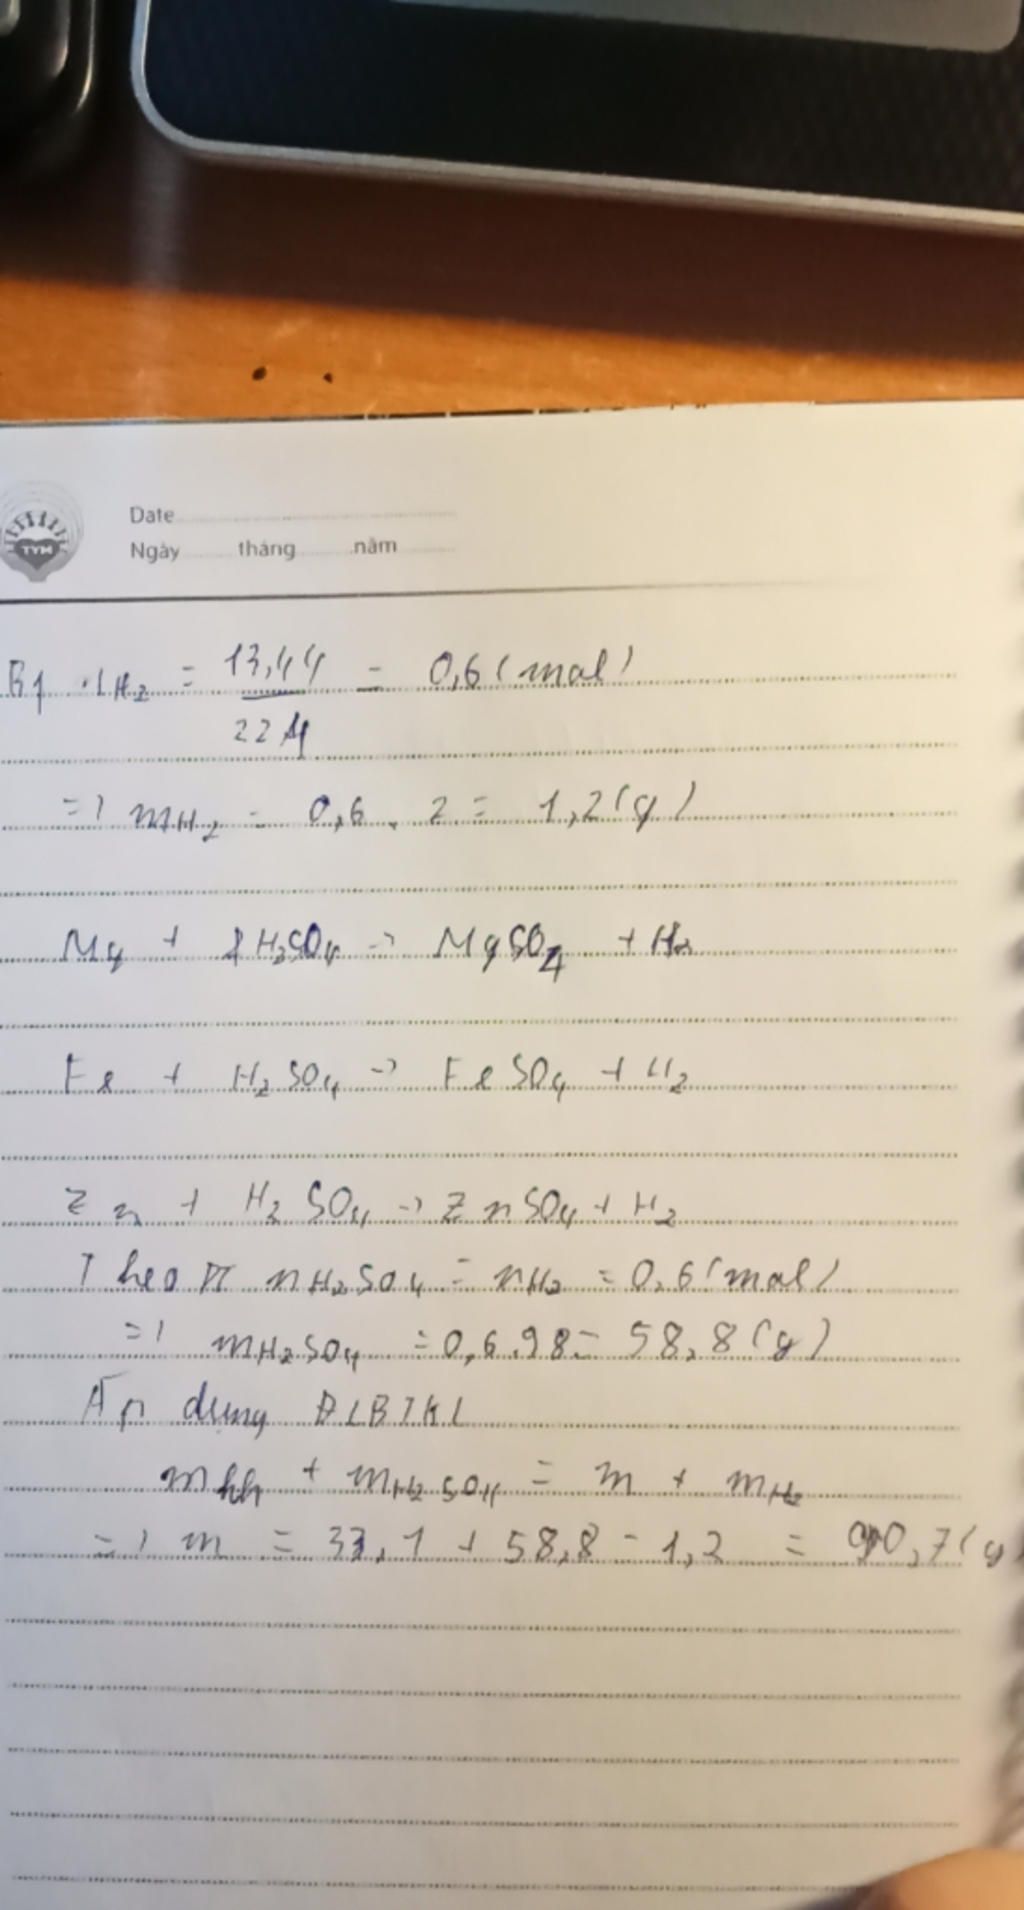 TYM
Date
Ngày tháng năm
B1 nH2 = 13,44 / 22,4 = 0,6 (mol)
=> mH2 = 0,6 . 2 = 1,2 (g)
Mg + H2SO4 -> MgSO4 + H2
Fe + H2SO4 -> FeSO4 + H2
Zn + H2SO4 -> ZnSO4 + H2
Theo PT nH2SO4 = nH2 = 0,6 (mol)
=> mH2SO4 = 0,6.98 = 58,8 (g)
Áp dụng ĐLBTKL
mhh + mH2SO4 = m + mH2
=> m = 33,1 + 58,8 - 1,2 = 90,7 (g